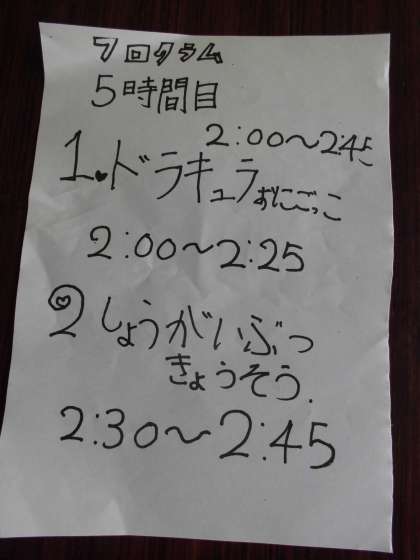 プログラム
5時間目
2:00～2:45
1.ドラキュラおにごっこ
2:00～2:25
2しょうがいぶっ
きょうそう.
2:30～2:45